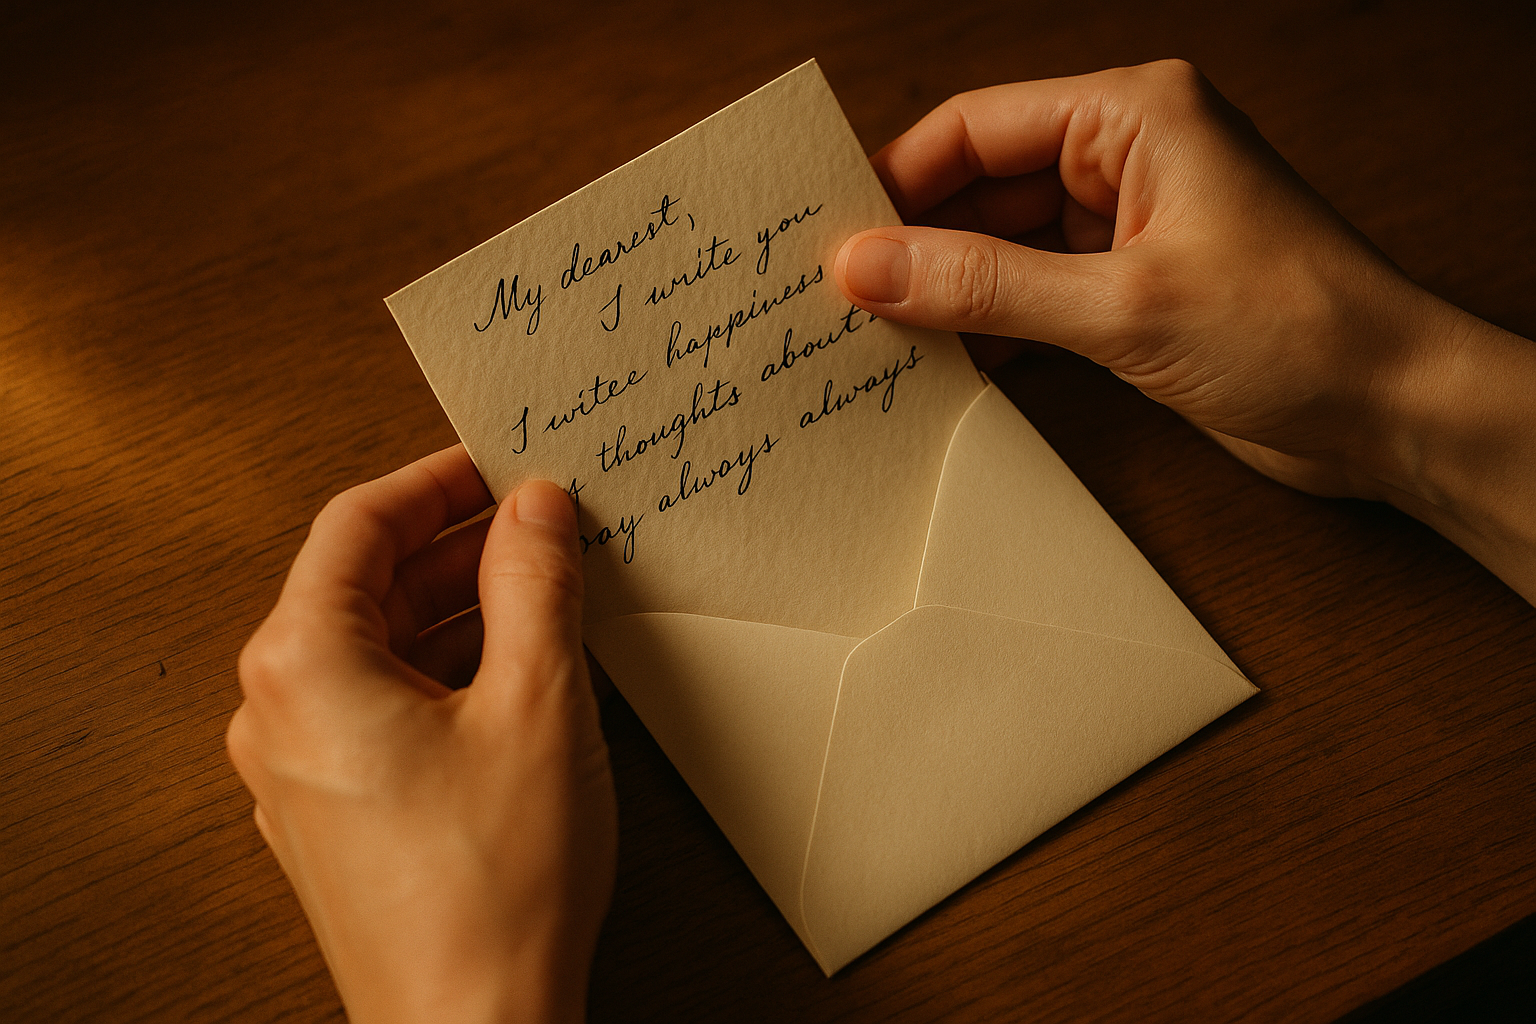 My dearest,
I write you
I witee happiness
thoughts about
always always